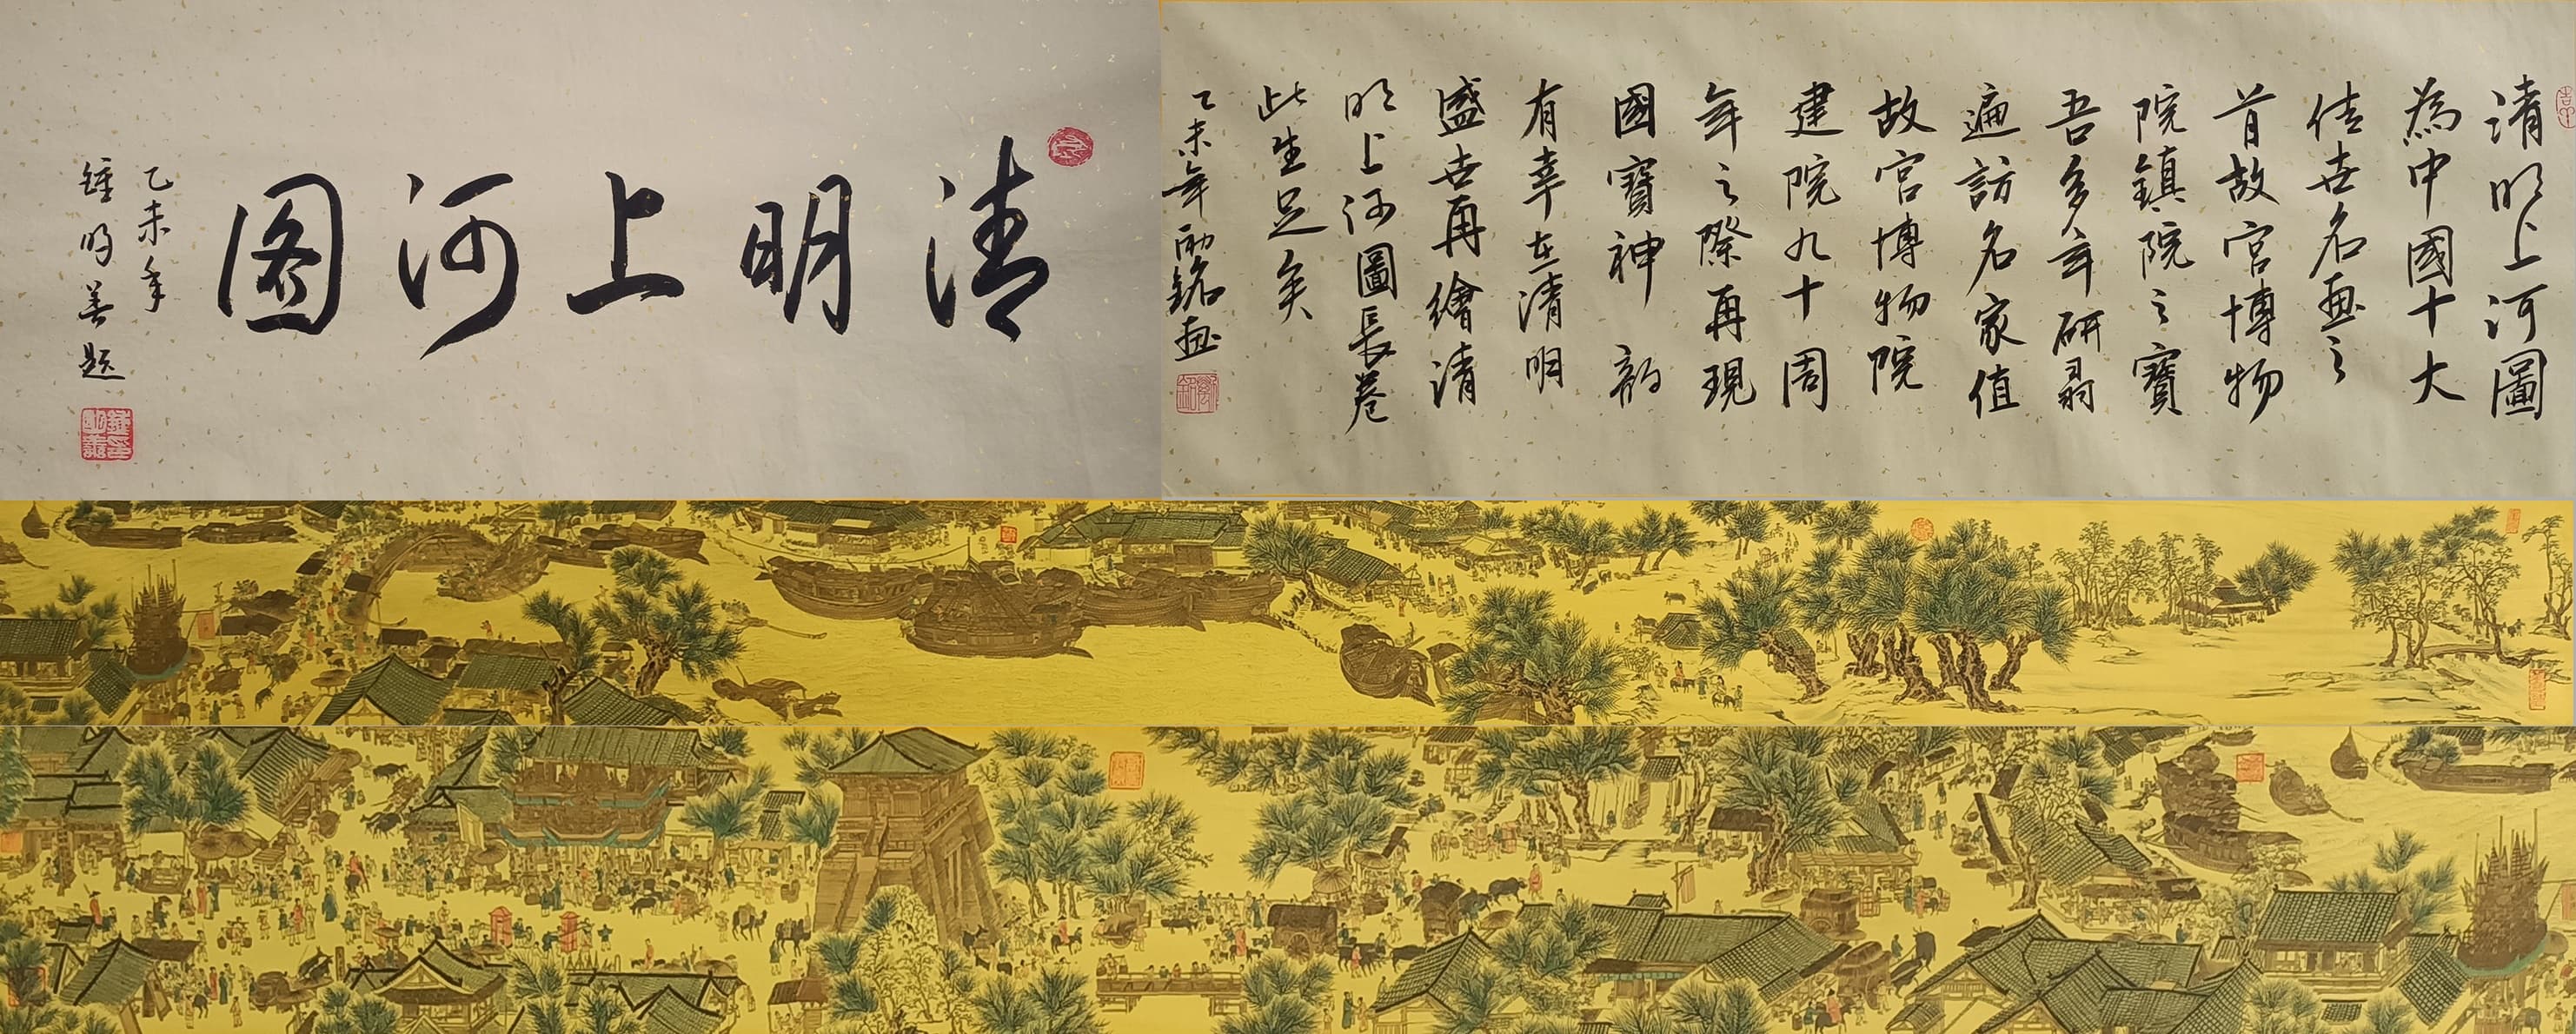 清明上河图
乙未年
鍾明善题
清明上河圖
為中國十大
传世名画之
首故宫博物
院鎮院之寶
吾多年研習
遍訪名家值
故宫博物院
建院九十周
年之際再現
國寶神韵
有幸在清明
盛世再繪清
明上河圖長卷
此生足矣
乙未年銘画